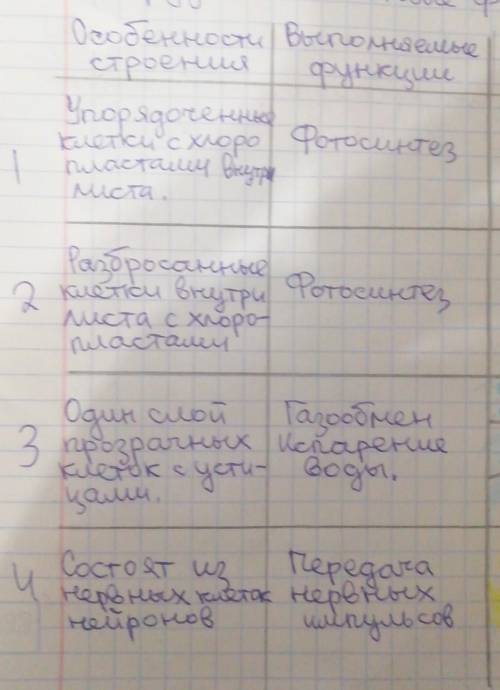 Особенности строения
Выполняемые функции
1
Упорядоченные
клетки с хлоро
пластами внутри
листа.
Фотосинтез
2
Разбросанные
клетки внутри
листа с хлоро-
пластами
Фотосинтез
3
Один слой
прозрачных
клеток с усти-
цами.
Газообмен
Испарение
воды.
4
Состоят из
нервных клеток
нейронов
Передача
нервных
импульсов